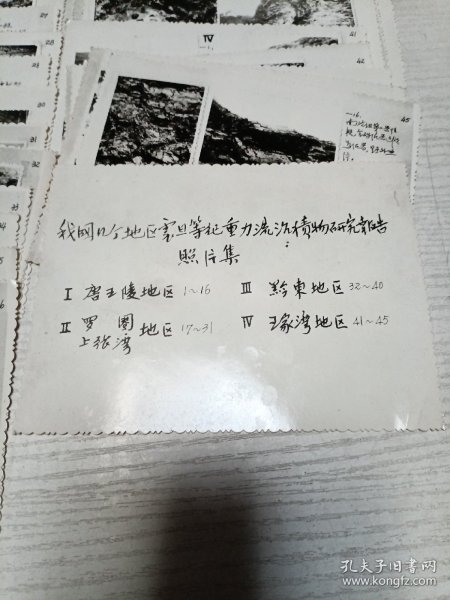 IV
45
我国几个地区震旦等纪重力流沉积物研究报告
照片集
I 唐王陵地区 1~16
III 黔東地区 32~40
II 罗圈 上张湾 地区 17~31
IV 王家湾地区 41~45
27
28
29
30
31
32
33
孔夫子旧书网
www.kongfz.com